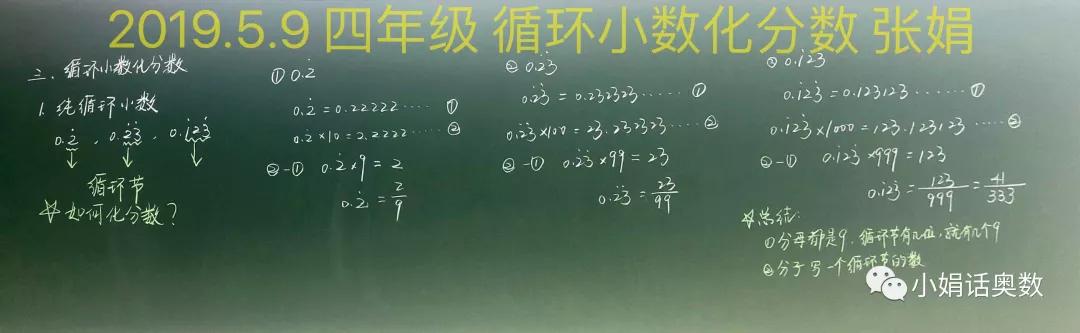 2019.5.9 四年级 循环小数化分数 张娟
三、循环小数化分数
1. 纯循环小数
0.2̇ , 0.2̇3̇ , 0.1̇23̇
循环节
☆如何化分数?
① 0.2̇
0.2̇ = 0.22222…… ①
0.2̇×10 = 2.2222…… ②
②-① 0.2̇×9 = 2
0.2̇ = 2/9
② 0.2̇3̇
0.2̇3̇ = 0.232323…… ①
0.2̇3̇×100 = 23.232323…… ②
②-① 0.2̇3̇×99 = 23
0.2̇3̇ = 23/99
③ 0.1̇23̇
0.1̇23̇ = 0.123123…… ①
0.1̇23̇×1000 = 123.123123…… ②
②-① 0.1̇23̇×999 = 123
0.1̇23̇ = 123/999 = 41/333
☆总结:
①分母都是9,循环节有几位,就有几个9
②分子写一个循环节的数
小娟话奥数